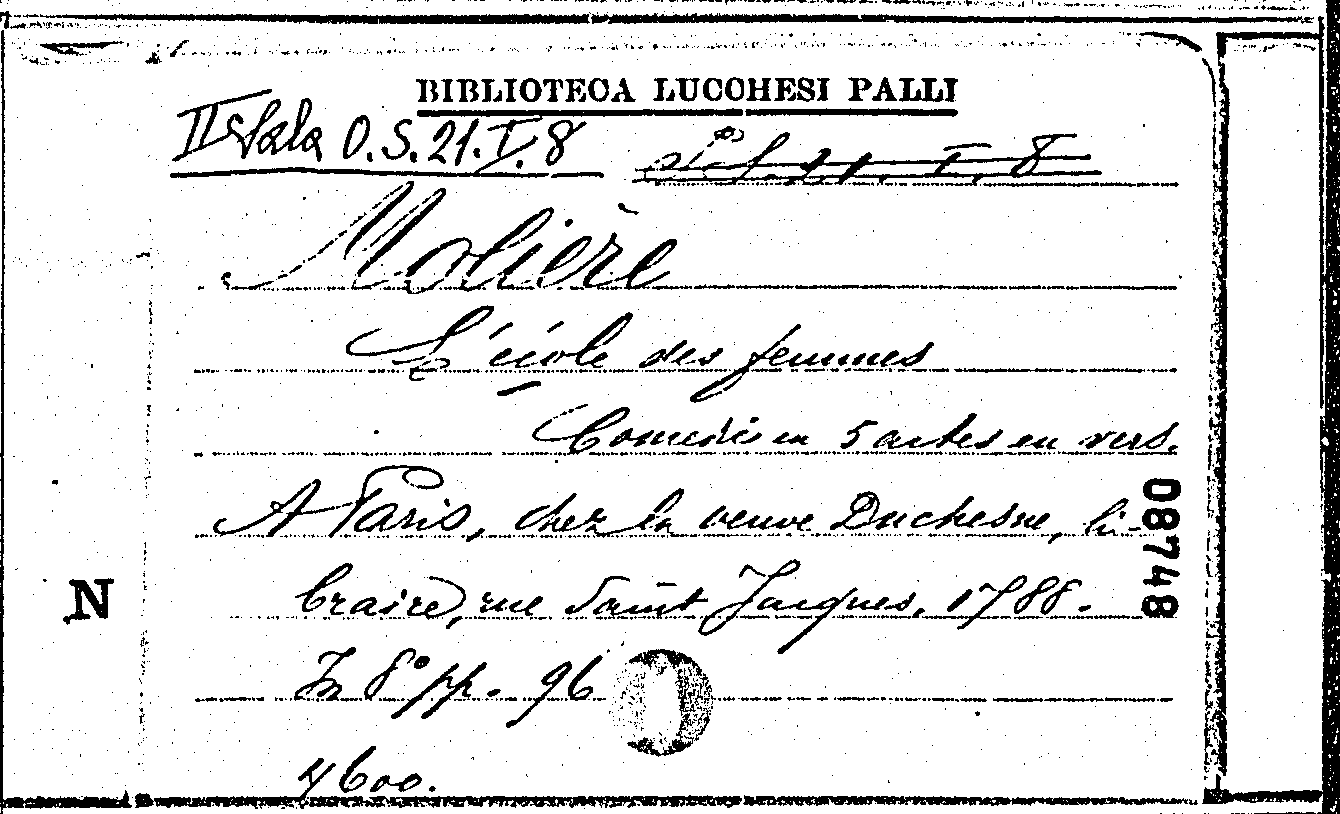 BIBLIOTECA LUCCHESI PALLI
II Sala O.S.21.I.8
21. I. 8
Molière
L'école des femmes
Comedie en 5 actes en vers.
A Paris, chez la veuve Duchesne, li-
braire, rue Saint Jacques, 1788.
In 8° pp. 96
4600.
N
08748